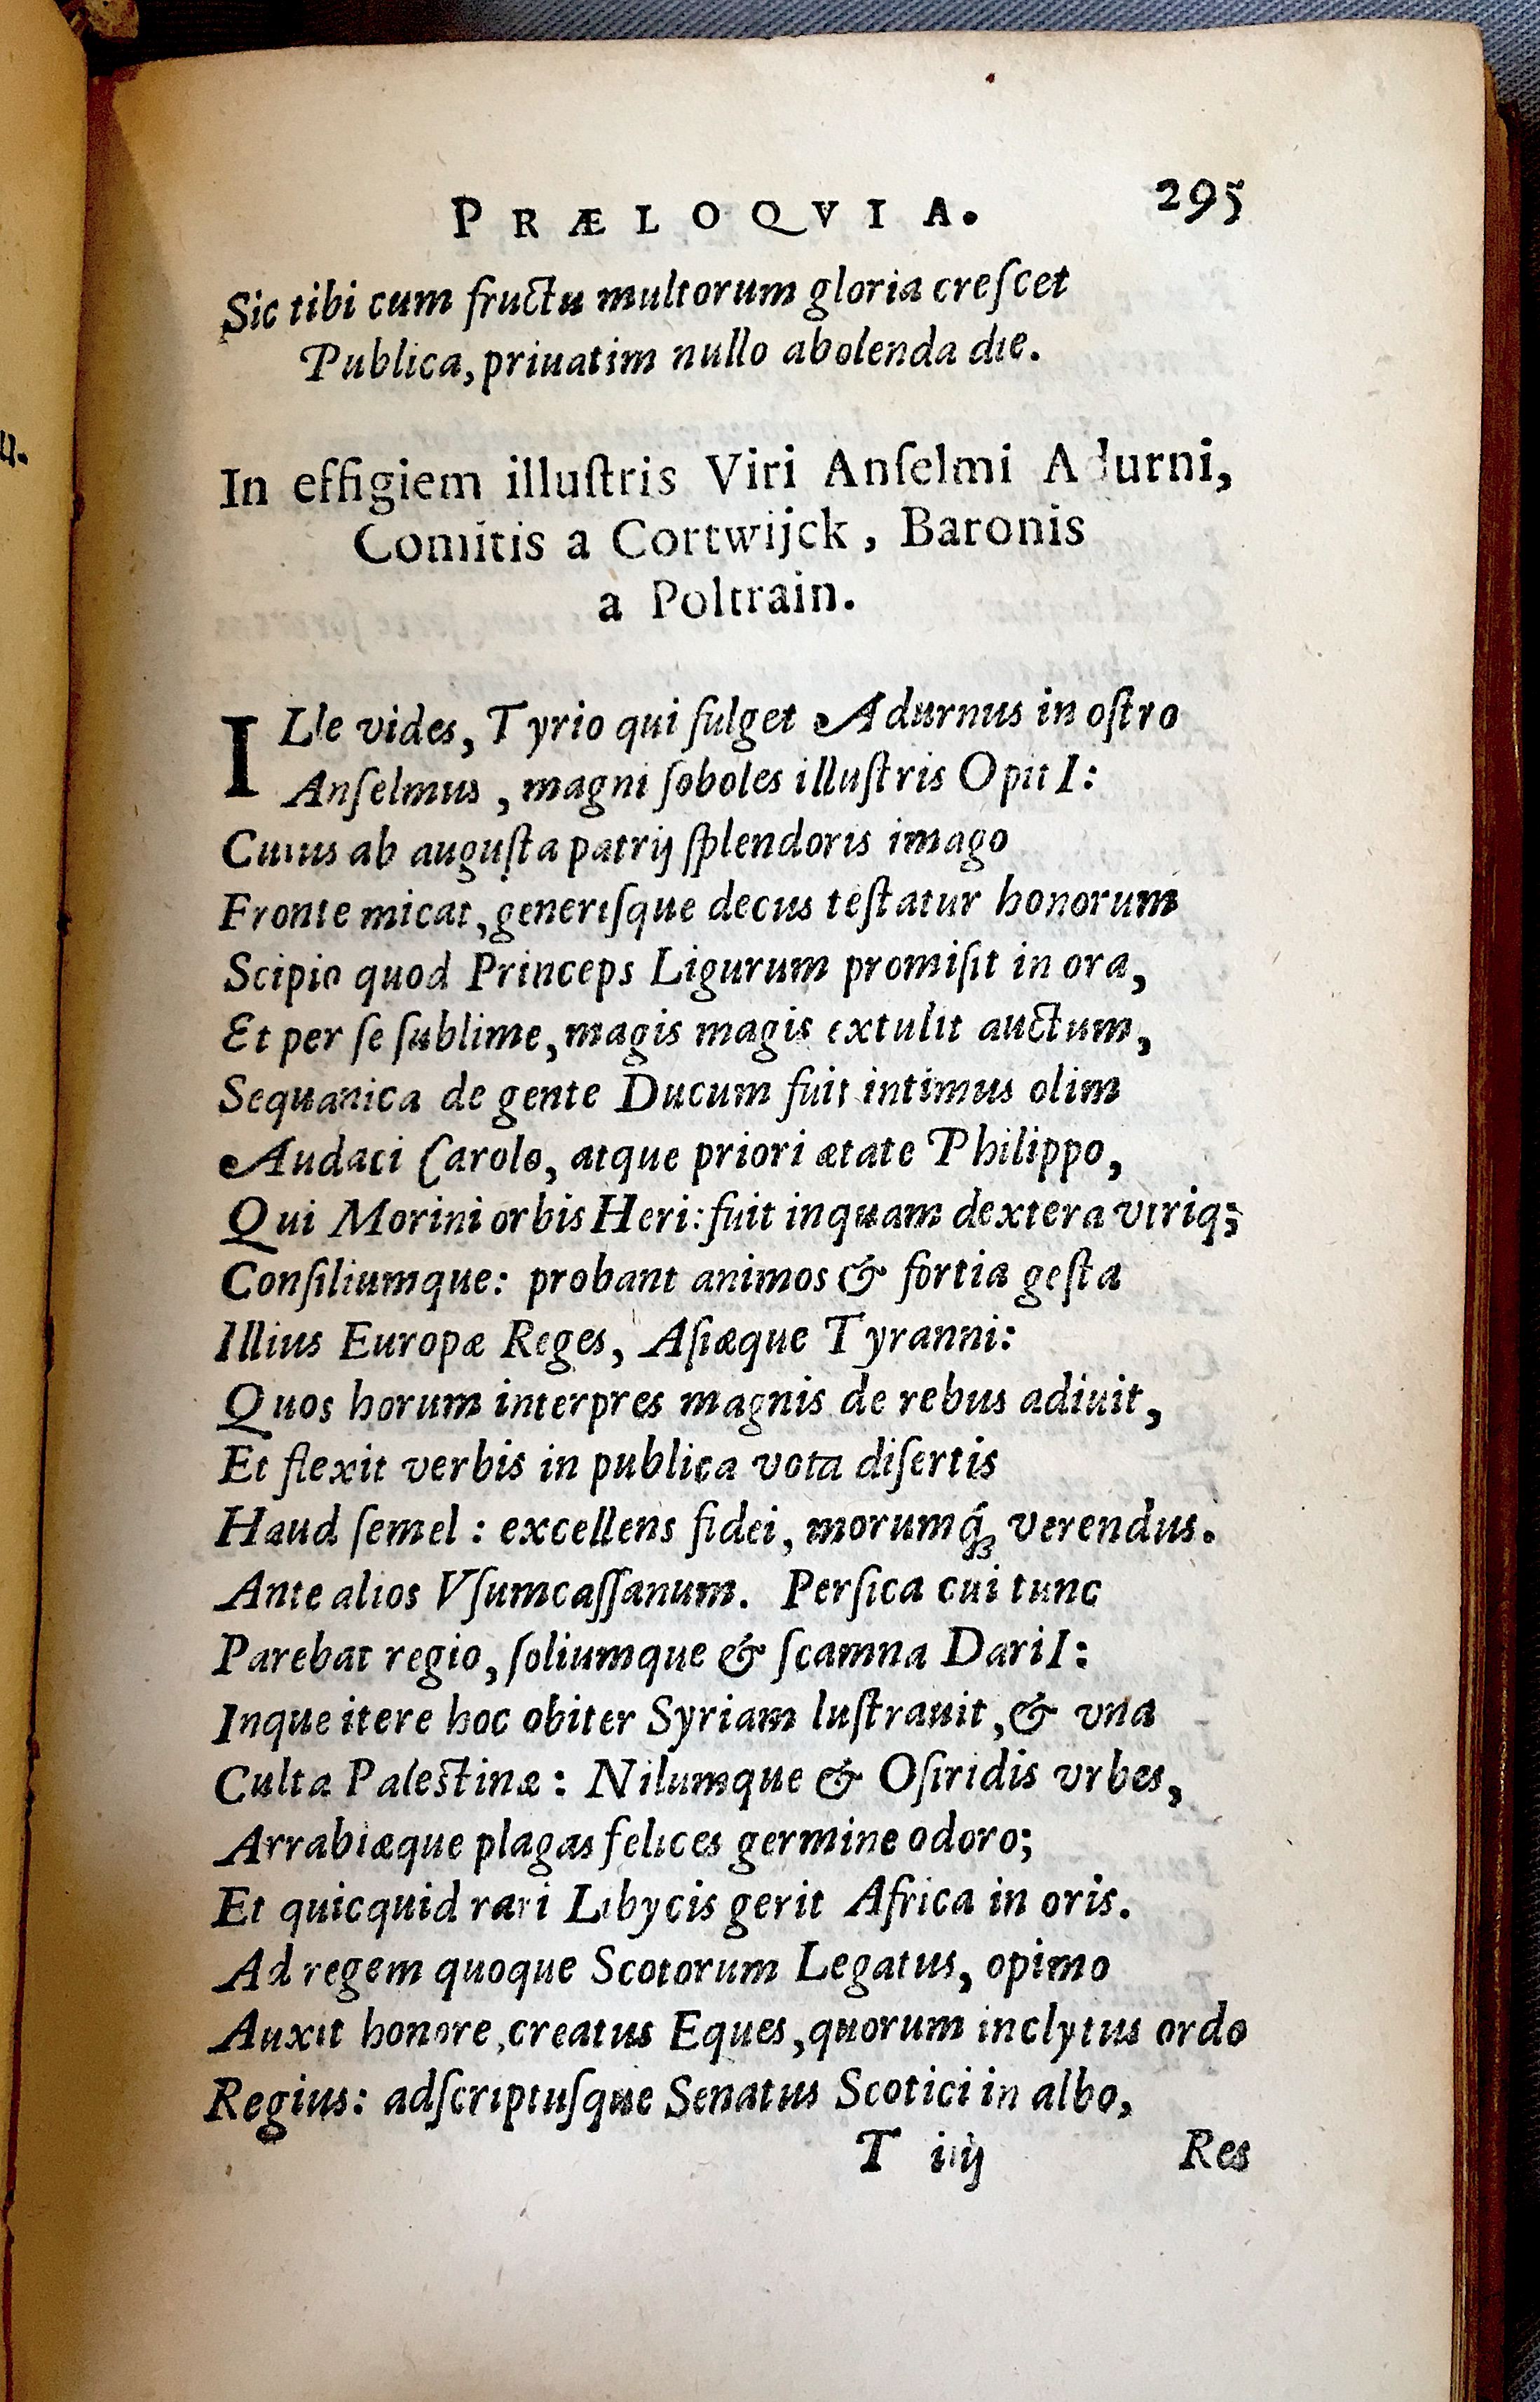 PRÆLOQVIA. 295
Sic tibi cum fructu multorum gloria creſcet
Publica, priuatim nullo abolenda die.
In effigiem illuſtris Viri Anſelmi Adurni,
Comitis a Cortwijck, Baronis
a Poltrain.
ILle vides, Tyrio qui fulget Adurnus in oſtro
Anſelmus, magni ſoboles illuſtris OpitI:
Cuius ab auguſta patrij ſplendoris imago
Fronte micat, generiſque decus teſtatur honorum
Scipio quod Princeps Ligurum promiſit in ora,
Et per ſe ſublime, magis magis extulit auctum,
Sequanica de gente Ducum fuit intimus olim
Audaci Carolo, atque priori ætate Philippo,
Qui Morini orbis Heri: fuit inquam dextera vtriq;
Conſiliumque: probant animos & fortia geſta
Illius Europæ Reges, Aſiæque Tyranni:
Quos horum interpres magnis de rebus adiuit,
Et flexit verbis in publica vota diſertis
Haud ſemel: excellens fidei, morumq́ꝫ verendus.
Ante alios Vſumcaſſanum. Perſica cui tunc
Parebat regio, ſoliumque & ſcamna DariI:
Inque itere hoc obiter Syriam luſtrauit, & vna
Culta Palestinæ: Nilumque & Oſiridis vrbes,
Arrabiæque plagas felices germine odoro;
Et quicquid rari Libycis gerit Africa in oris.
Ad regem quoque Scotorum Legatus, opimo
Auxit honore, creatus Eques, quorum inclytus ordo
Regius: adſcriptuſque Senatus Scotici in albo,
T iiij Res